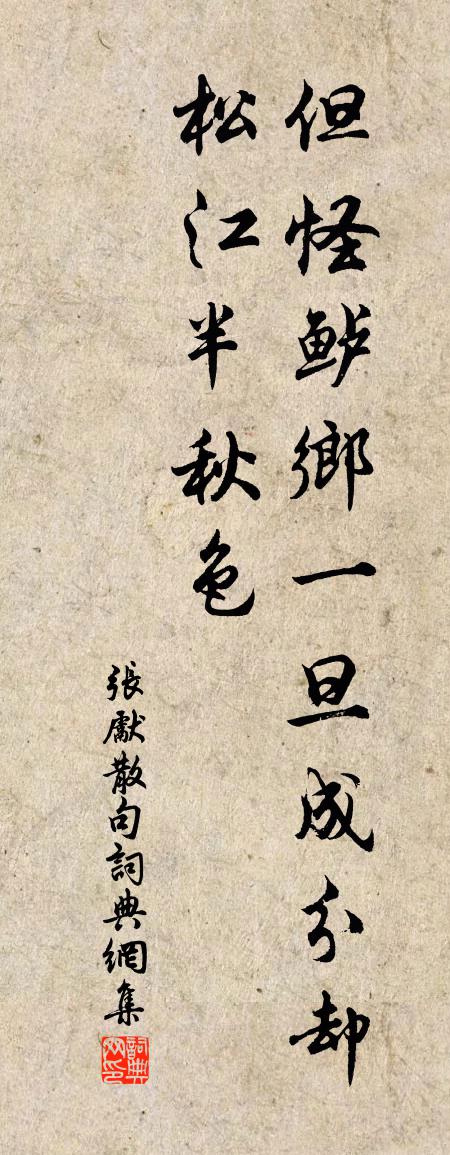 但怪鲈鄉一旦成分却
松江半秋色
張獻散句詞典網集
詞典网印